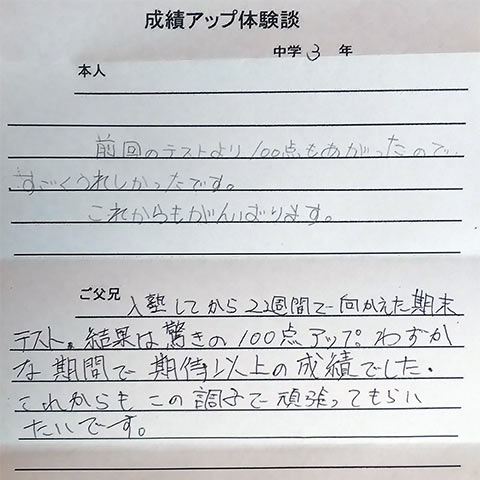 成績アップ体験談
中学3年
本人
前回のテストより100点もあがったので、
すごくうれしかったです。
これからもがんばります。
ご父兄 入塾してから2週間で向かえた期末
テスト。結果は驚きの100点アップ。わずか
な期間で期待以上の成績でした。
これからもこの調子で頑張ってもらい
たいです。